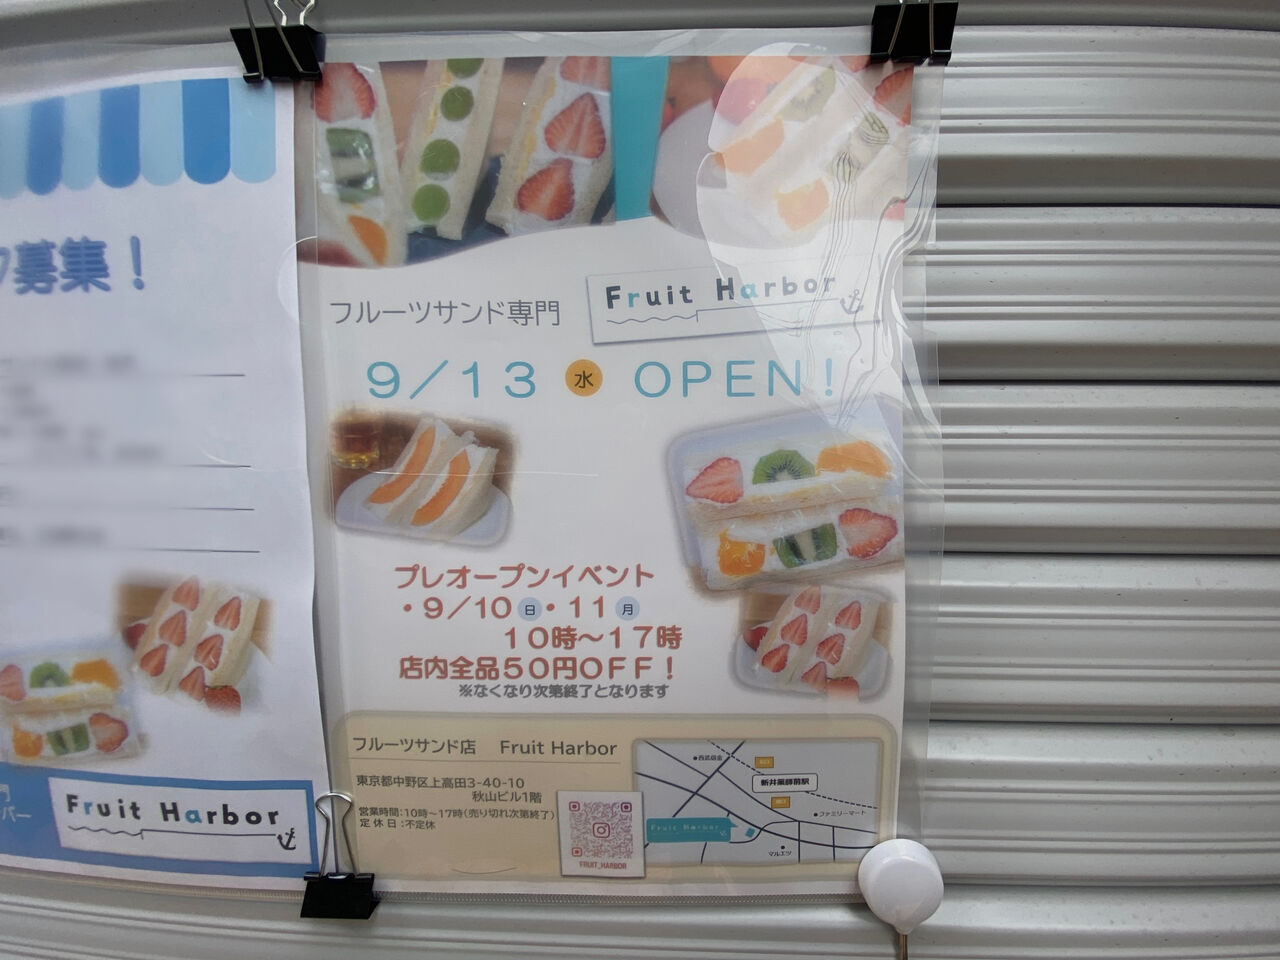 募集！
Fruit Harbor
フルーツサンド専門
Fruit Harbor
9／13 水 OPEN！
プレオープンイベント
・9／10 日・11 月
10時～17時
店内全品50円OFF！
※なくなり次第終了となります
フルーツサンド店 Fruit Harbor
東京都中野区上高田3-40-10
秋山ビル1階
営業時間：10時～17時（売り切れ次第終了）
定休日：不定休
FRUIT_HARBOR
西武信金
新井薬師前駅
ファミリーマート
Fruit Harbor
マルエツ